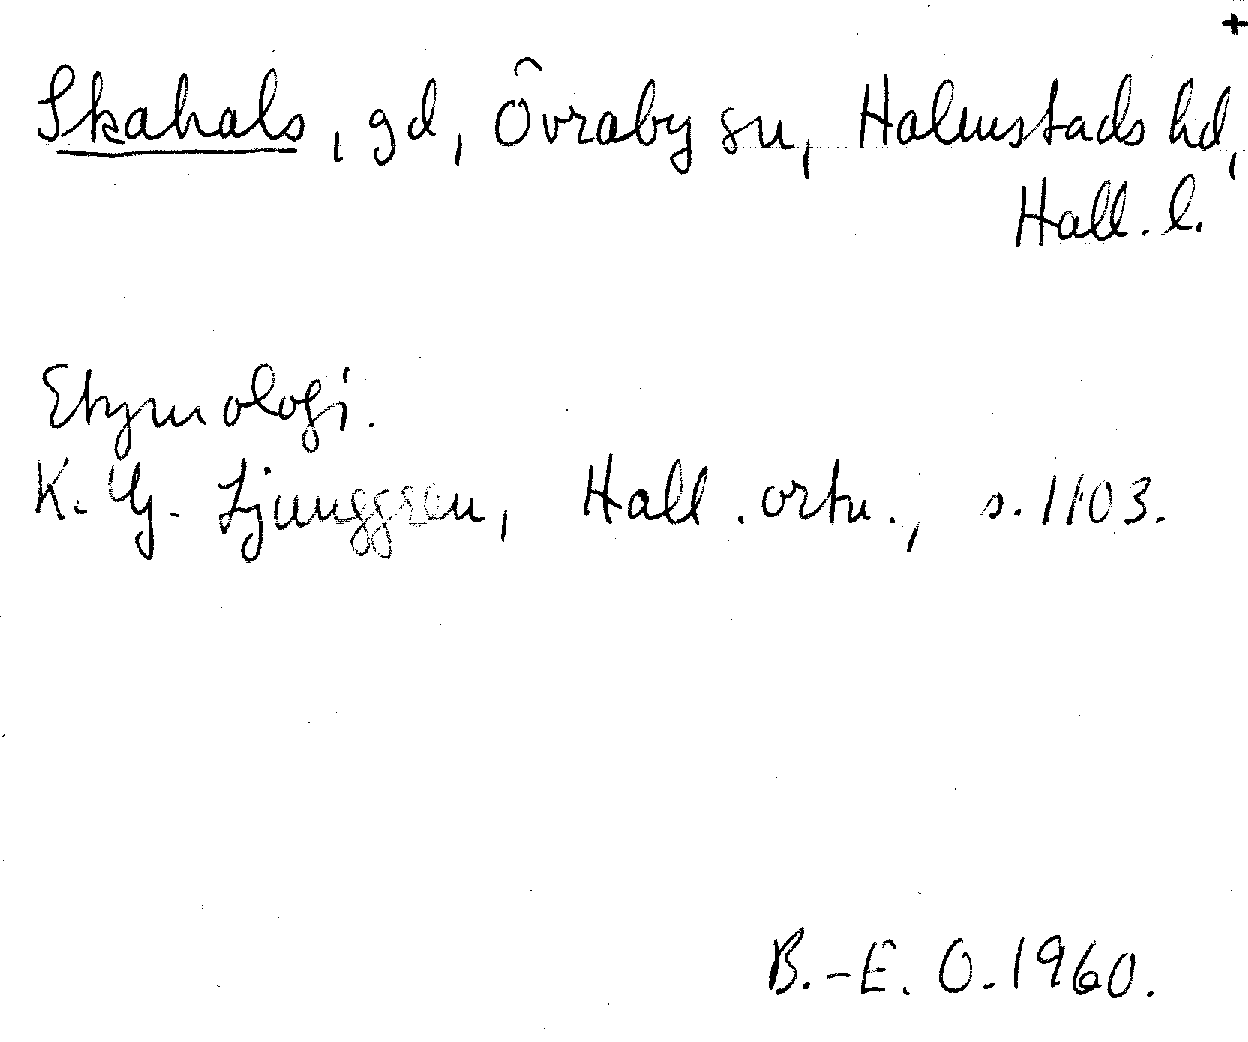 +
Skahals, gd, Övraby sn, Halmstads hd,
Hall. l.
Etymologi.
K. G. Ljunggren, Hall. ortn., s. 1103.
B.-E. O. 1960.